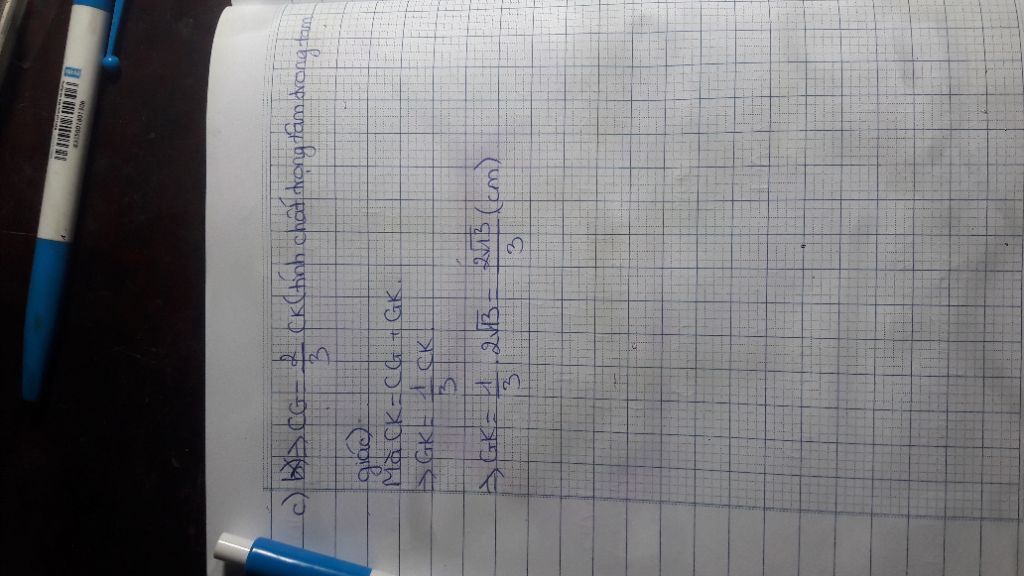 c) => CG = 2/3 CK (tính chất trọng tâm trong tam
giác)
Mà CK = CG + GK.
=> GK = 1/3 CK.
=> GK = 1/3 . 2√3 = 2√3/3 (cm)